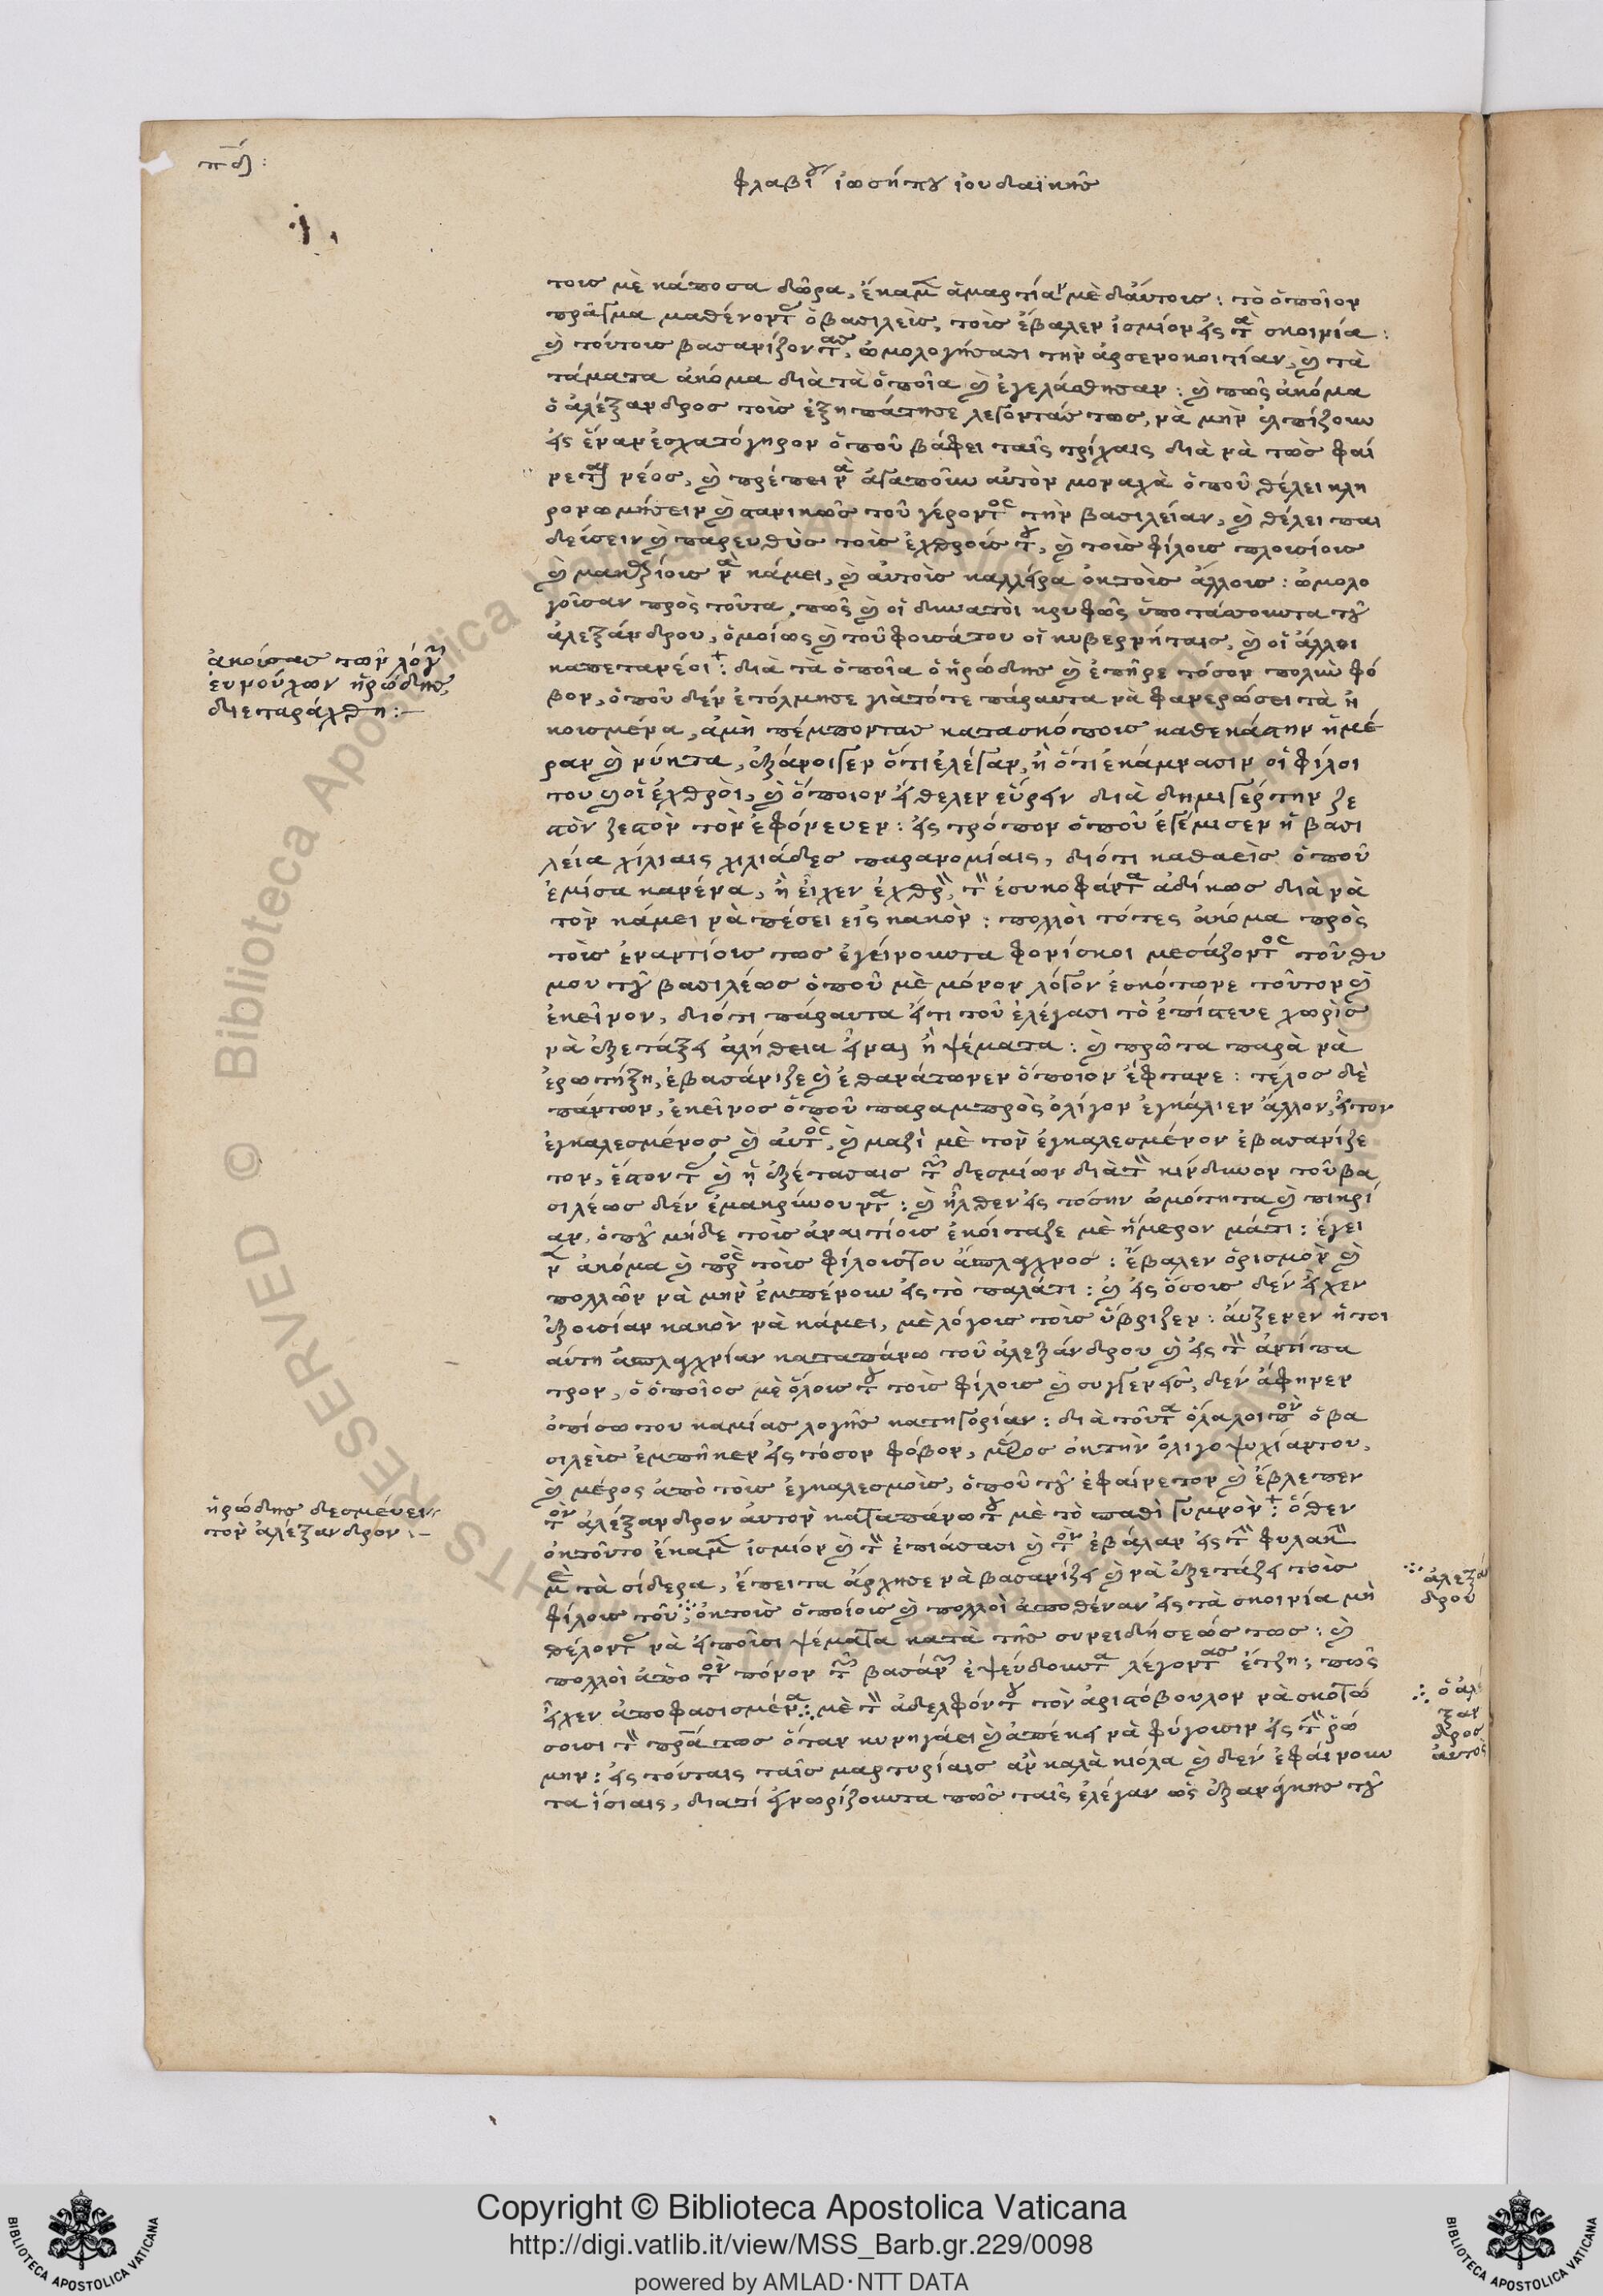 πδ:
φλαβίου ἰωσήπου ἰουδαϊκῆς
τους μὲ κάποσα δῶρα, ἔκαμε ἁμαρτίαν μὲ δαύτους: τὸ ὁποῖον
πρᾶγμα μαθένοντας ὁ βασιλεὺς, τοὺς ἔβαλεν ἰσμίον εἰς τὰ σκοινία:
καὶ τούτους βασανίζοντας, ὡμολογήσασι τὴν ἀρσενοκοιτίαν, καὶ τὰ
τάματα ἀκόμα διὰ τὰ ὁποῖα καὶ ἐγελάσθησαν: καὶ πῶς ἀκόμα
ὁ ἀλέξανδρος τοὺς ἐξηπάτησε λεγοντάς τως, νὰ μὴν ἐλπίζουν
εἰς ἕναν ἐσχατόγηρον ὁποῦ βάφει ταῖς τρίχαις διὰ νὰ τῶς φαί
νεται νέος, καὶ πρέπει νὰ ἀγαποῦν αὐτὸν μοναχὰ ὁποῦ θέλει κλη
ρονομήσειν καὶ στανικῶς τοῦ γέροντος τὴν βασιλείαν, καὶ θέλει παι
δεύσειν καὶ παρευθὺς τοὺς ἐχθρούς του, καὶ τοὺς φίλους πλουσίους
καὶ μακαρίους νὰ κάμει, καὶ αὐτοὺς καλλίτερα ὀκ τοὺς ἄλλους: ὡμολο
γοῦσαν πρὸς τοῦτα, πῶς καὶ οἱ δυνατοὶ κρυφῶς ὑποτάσουντα τοῦ
ἀλεξάνδρου, ὁμοίως καὶ τοῦ φουσάτου οἱ κυβερνήταις, καὶ οἱ ἄλλοι
καπετανέοι: διὰ τὰ ὁποῖα ὁ ἡρώδης καὶ ἐπῆρε τόσον πολὺν φό
βον, ὁποῦ δὲν ἐτόλμησε γιὰ τότε πάραυτα νὰ φανερώσει τὰ ἠ
κουσμένα, ἀμὴ πέμποντας κατασκόπους καθεκάστην ἡμέ
ραν καὶ νύκτα, ἐξάνοιγεν ὅτι ἐλέγαν, ἢ ὅτι ἐκάμνασιν οἱ φίλοι
του καὶ οἱ ἐχθροὶ, καὶ ὅποιον ἤθελεν εὕρειν διὰ δημιγέρτην ζε
στὸν ζεστὸν τὸν ἐφόνευεν: εἰς τρόπον ὁποῦ ἐγέμισεν ἡ βασι
λεία χίλιαις χιλιάδες παρανομίαις, διότι καθαεὶς ὁποῦ
ἐμίσα κανένα, ἢ εἶχεν ἐχθρὴν, τὴν ἐσυκοφάντα ἀδίκως διὰ νὰ
τὸν κάμει νὰ πέσει εἰς κακὸν: πολλοὶ τότες ἀκόμα πρὸς
τοὺς ἐναντίους τως ἐγείρουστα φονίσκοι μεσάζοντος τοῦ θυ
μου τοῦ βασιλέως ὁποῦ μὲ μόνον λόγον ἐσκότωνε τοῦτον καὶ
ἐκεῖνον, διότι πάραυτα εἴτι τοῦ ἐλέγασι τὸ ἐπίστευε χωρὶς
νὰ ἐξετάξει ἀλήθεια εἶναι ἢ ψέματα: καὶ πρῶτα παρὰ νὰ
ἐρωτήξη, ἐβασάνιζε καὶ ἐθανάτωνεν ὅποιον ἔφτανε: τέλος δὲ
πάντων, ἐκεῖνος ὁποῦ παραμπρὸς ὀλίγον ἐγκάλιεν ἄλλον, ἤτον
ἐγκαλεσμένος καὶ αὐτὸς, καὶ μαζὶ μὲ τὸν ἐγκαλεσμένον ἐβασανίζε
τον, ἔστοντας καὶ ἡ ἐξέτασαις τῶν δεσμίων διὰ τὴν κίνδυνον τοῦ βα
σιλέως δὲν ἐμακρύνουντα: καὶ ἦλθεν εἰς τόσην ὠμότητα καὶ πικρί
αν, ὁποῦ μήδε τοὺς ἀναιτίους ἐκοίταζε μὲ ἥμερον μάτι: ἔγει
νεν ἀκόμα καὶ πρὸς τοὺς φίλους του ἄσπλαγχνος: ἔβαλεν ὁρισμὸν καὶ
πολλῶν νὰ μὴν ἐμπένουν εἰς τὸ παλάτι: καὶ εἰς ὅσους δὲν εἶχεν
ἐξουσίαν κακὸν νὰ κάμει, μὲ λόγους τοὺς ὕβριζεν: ἄυξενεν ἡ τοι
αύτη ἀσπλαγχνίαν καταπάνω τοῦ ἀλεξάνδρου καὶ εἰς τὴν ἀντίπα
τρον, ὁ ὁποῖος μὲ ὅλους του τοὺς φίλους καὶ συγγενεῖς, δὲν ἀφηνεν
ὀπίσω του καμίας λογῆς κατηγορίαν: διὰ τοῦτα ὁλάλοιπον ὁ βα
σιλεὺς ἐμπῆκεν εἰς τόσον φόβον, μέρος ὀκ τὴν ὀλιγοψυχίαν του,
καὶ μέρος ἀπὸ τοὺς ἐγκαλεσμοὺς, ὁποῦ τοῦ ἐφαίνετον καὶ ἔβλεπεν
τὸν ἀλέξανδρον αὐτὸν καταπάνω του μὲ τὸ σπαθὶ γυμνὸν: ὅθεν
ὀκ τοῦτο ἔκαμε ἰσμιόν καὶ τὴν ἐπιάσασι καὶ τὸν ἐβάλαν εἰς τὴν φυλακὴν
μὲ τὰ σίδερα, ἔπειτα ἄρχησε νὰ βασανίζει καὶ νὰ ἐξετάζει τοὺς
φίλους τοῦ ὀκ τοὺς ὁποίους καὶ πολλοὶ ἀποθέναν εἰς τὰ σκοινία μὴ
θέλοντας νὰ εἰποῦσι ψέματα κατὰ τῆς συνειδήσεώς τως: καὶ
πολλοὶ ἀπὸ τὸν πόνον τῶν βασάνων ἐψεύδουντα λέγοντας ἔτζη: πῶς
εἶχεν ἀποφασισμένα μὲ τὴν ἀδελφόν του τὸν ἀριστόβουλον νὰ σκοτώ
σουσι τὴν πράτως ὅταν κυνηγάει καὶ ἀπέκει νὰ φύγουσιν εἰς τὴν ῥώ
μην: εἰς τούταις ταῖς μαρτυρίαις ἂν καλὰ κιόλα καὶ δὲν ἐφαίνουν
τα ἴσιαις, διατί ἐγνωρίζουντα πῶς ταῖς ἐλέγαν ὡς ἐξ ανάγκης τοῦ
ἀκούσας τῶν λόγων
ἐυνούχων ἡρώδης,
διεταράχθη:
ἡρώδης δεσμέυει
τὸν ἀλέξανδρον
ἀλεξάν
δρου
ὁ ἀλέ
ξαν
δρος
αὐτὸς
Copyright © Biblioteca Apostolica Vaticana
http://digi.vatlib.it/view/MSS_Barb.gr.229/0098
powered by AMLAD·NTT DATA